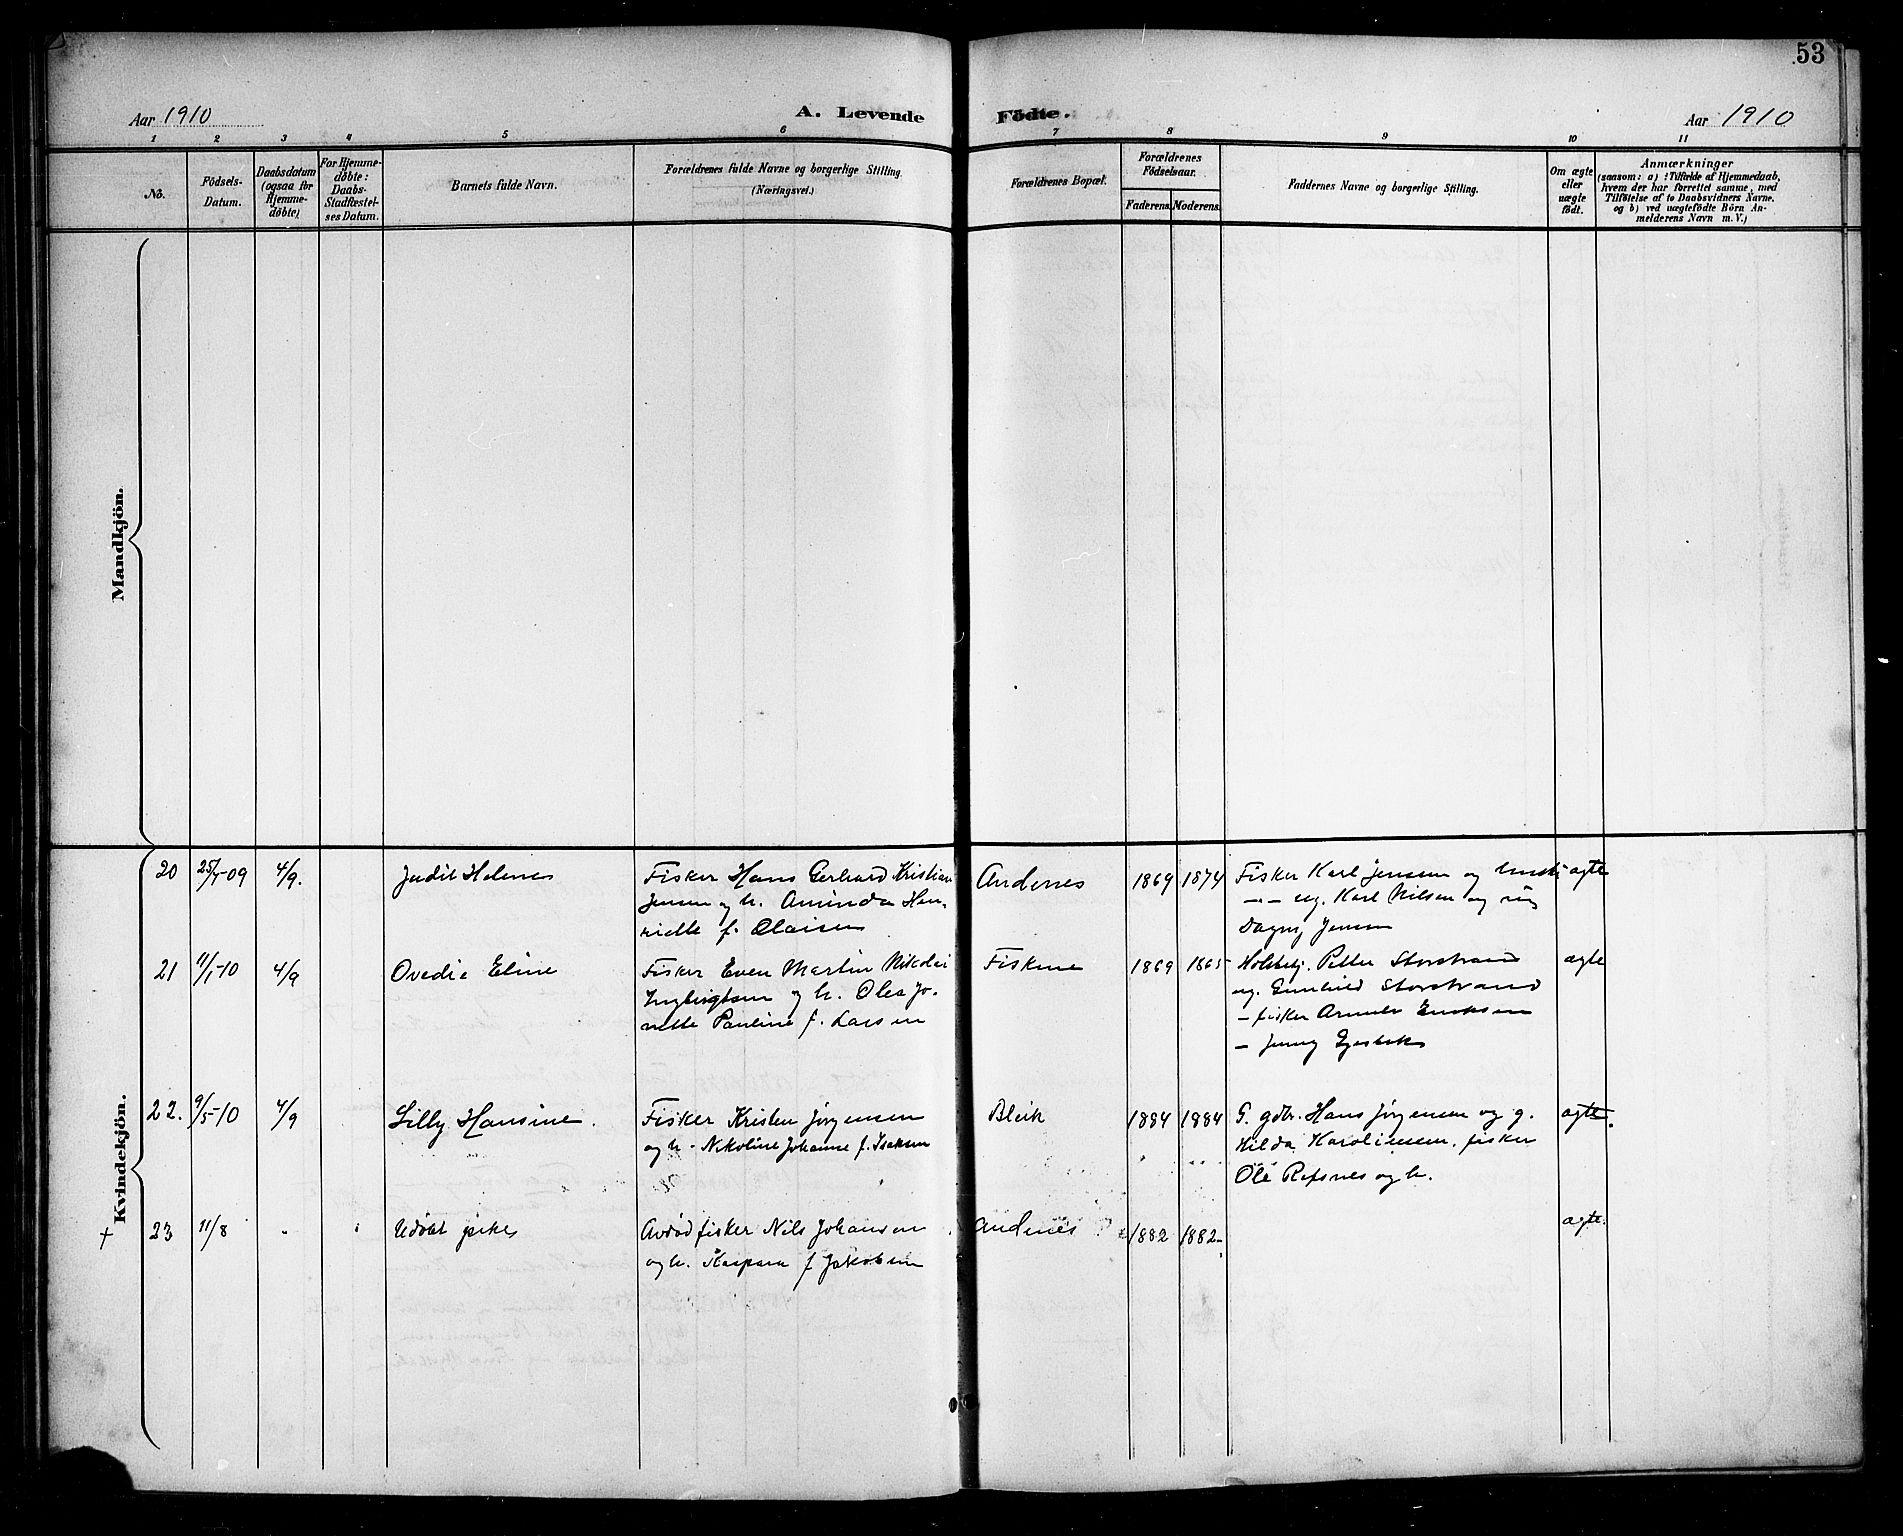 53
Aar 1910
A. Levende Födte.
Aar 1910
1 2 3 4 5 6 7 8 9 10 11
No.
Födsels-
Datum.
Daabsdatum
(ogsaa for
Hjemme-
døbte)
For Hjemme-
døbte:
Daabs-
Stadfæstel-
ses Datum.
Barnets fulde Navn.
Forældrenes fulde Navne og borgerlige Stilling.
(Næringsvei.)
Forældrenes Bopæl.
Forældrenes
Födselsaar.
Faderens. Moderens.
Faddernes Navne og borgerlige Stilling.
Om ægte
eller
uægte
født.
Anmærkninger
(saasom: a) i Tilfælde af Hjemmedaab,
hvem der har forrettet samme, med
Tilføielse af to Daabsvidners Navne.
og b) ved uægtefödte Börn An-
melderens Navn m. V.)
Mandkjön.
Kvindekjön.
20 25/ -09 4/9. Judit Helene
Fisker Hans Gerhard Kristian
Jensen og h. Aminda Hen-
riette f. Olaisen
Andenes 1869 1874
Fisker Karl Jensen og hustr
- - ug. Karl Nilsen og
Dagny Jensen
ægte
21 11/1-10 4/9 Ovedie Eline
Fisker Even Martin Nikolai
Ingebrigtsen og h. Olea Jo-
nette Pauline f. Larsen
Fiskene 1869 1865
Petter Storstrand
ug. Gunhild Storstrand
- fisker Eriksen
- Jenny
ægte
22. 9/5-10 4/9 Lilly Hansine.
Fisker Kristen Jörgensen
og h. Nikoline Johanne f. Isaksen
Bleik 1884 1884
G. gdbr. Hans Jörgensen og g.
Hilda Karoliussen, fisker
Ole Refsnes og h.
ægte.
+ 23 11/8 " " Udöbt pike
Avdöd fisker Nils Johansen
og h. Kaspara f Jakobsen
Andenes 1882 1882
ægte.